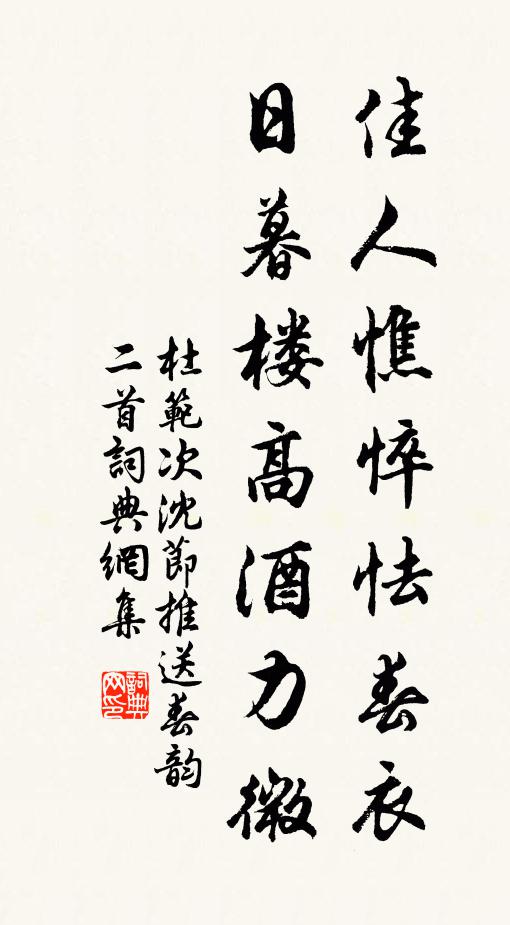 佳人憔悴怯春衣
日暮楼高酒力微
杜範次沈節推送春韵
二首詞典網集
詞典网印